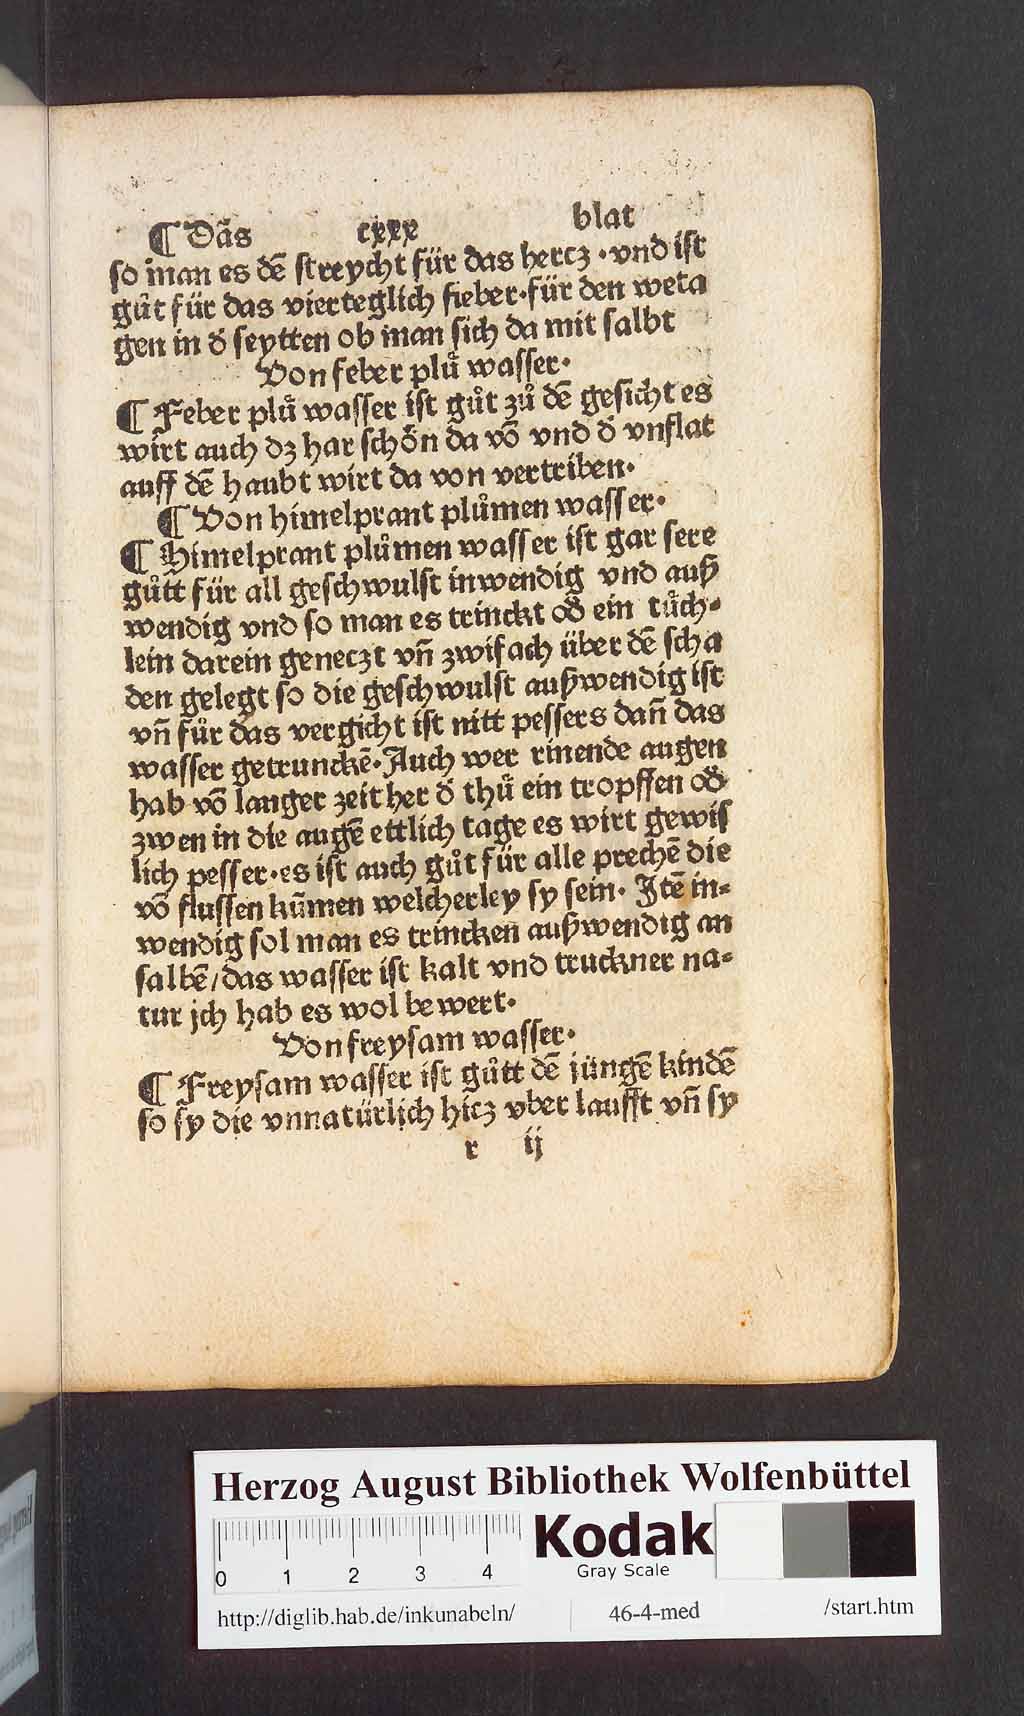 ¶ Das cxxx blat
so man es dē streycht für das hercz · vnd ist
gůt für das vierteglich fieber · für den weta
gen in đ seytten ob man sich da mit salbt
Von feber plů wasser ·
¶ Feber plů wasser ist gůt zů dē gesicht es
wirt auch dz har schön da vō vnd đ vnflat
auff dē haubt wirt da von vertriben ·
¶ Von himelprant plůmen wasser ·
¶ Himelprant plůmen wasser ist gar sere
gůtt für all geschwulst inwendig vnd auß
wendig vnd so man es trinckt ođ ein tůch⸗
lein darein geneczt vn̄ zwifach über dē scha
den gelegt so die geschwulst außwendig ist
vn̄ fůr das vergicht ist nitt pessers dan̄ das
wasser getrunckē · Auch wer rinende augen
hab vō langer zeit her đ thů ein tropffen ođ
zwen in die augē ettlich tage es wirt gewis
lich pesser · es ist auch gůt für alle prechē die
vō flussen kūmen welcherley sy sein · Itē in⸗
wendig sol man es trincken außwendig an
salbē / das wasser ist kalt vnd truckner na⸗
tur jch hab es wol bewert ·
Von freysam wasser ·
¶ Freysam wasser ist gůtt dē jüngē kindē
so sy die vnnatürlich hicz vber laufft vn̄ sy
r ij
Herzog August Bibliothek Wolfenbüttel
Kodak
Gray Scale
0 1 2 3 4
http://diglib.hab.de/inkunabeln/ 46-4-med /start.htm